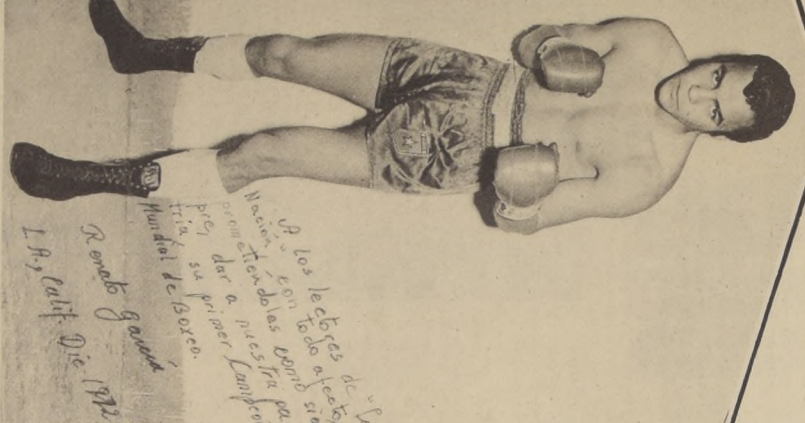 A los lectores de "
Nación", con todo afecto,
prometiendolas como siem
pre, dar a nuestra pa
tria, su primer Campeo
Mundial de Boxeo.
Renato García
L.A., Calif. Dic 1972